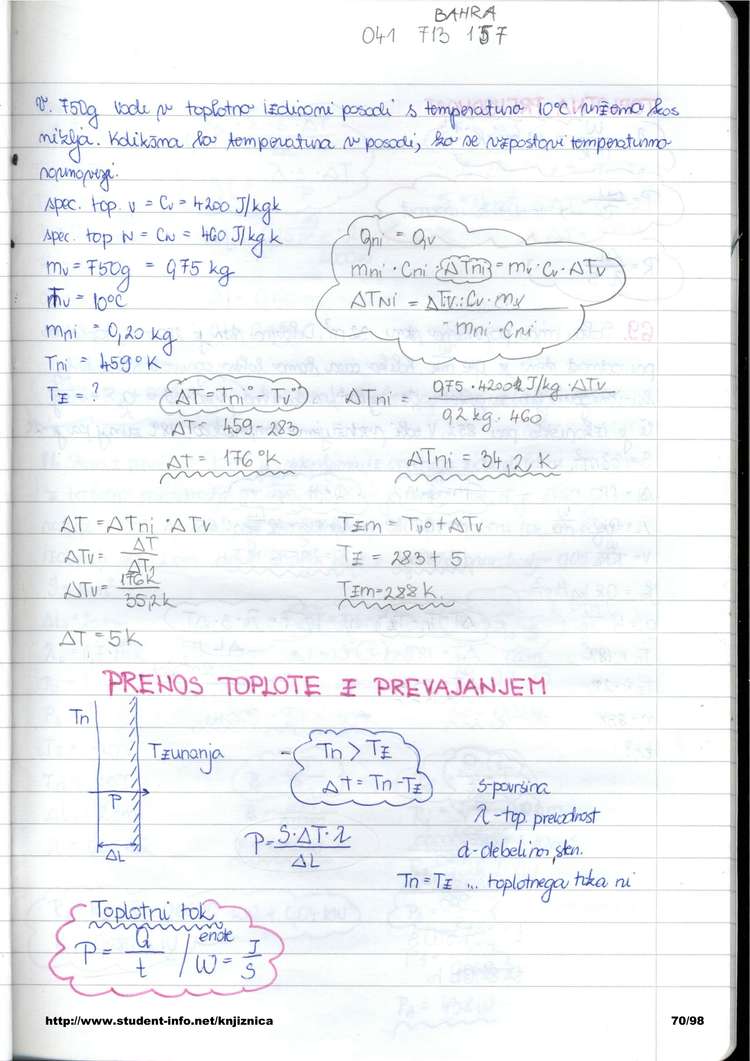 BAHRA
041 713 157
V. 750g vode v toplotno izolirani posodi s temperaturo 10°C vržemo kos
niklja. Kolikšna bo temperatura v posodi, ko se vzpostavi temperaturno
spec. top. v = Cv = 4200 J/kgk
spec. top N = CN = 460 J/kgk
mv = 750g = 0,75 kg
Tv = 10°C
mni = 0,20 kg
Tni = 459°K
TZ = ?
Qni = Qv
mni · Cni · ΔTni = mv · Cv · ΔTv
ΔTNi = ΔTv · Cv · mv
mni · Cni
ΔT = Tni° - Tv°
ΔT = 459 - 283
Δt = 176°K
ΔTni = 0,75 · 4200 J/kg · ΔTv
0,2 kg · 460
ΔTni = 34,2 K
ΔT = ΔTni · ΔTv
ΔTv = ΔT
ΔT2
ΔTv = 176K
35,2k
ΔT = 5K
TZm = Tvo + ΔTv
TZ = 283 + 5
TZm = 288 K.
PRENOS TOPLOTE Z PREVAJANJEM
Tn
Tzunanja
P
ΔL
- Tn > TZ
Δt = Tn - TZ
P = S·ΔT·λ
ΔL
s-površina
λ - top. prevodnost
d-debelina sten.
Tn = TZ ... toplotnega toka ni
Toplotni tok
P = Q / enote
t W = J
S
http://www.student-info.net/knjiznica
70/98